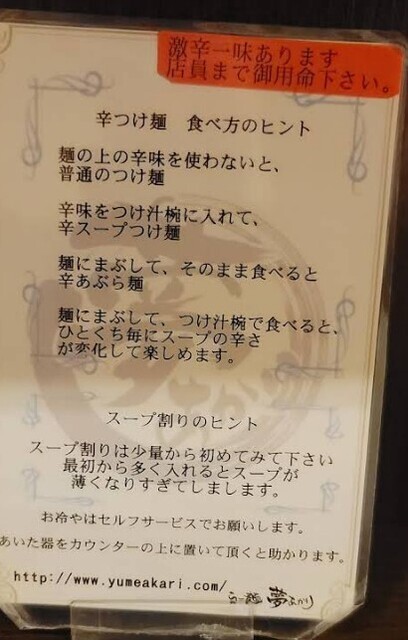 激辛一味あります
店員まで御用命下さい。
辛つけ麺 食べ方のヒント
麺の上の辛味を使わないと、
普通のつけ麺
辛味をつけ汁椀に入れて、
辛スープつけ麺
麺にまぶして、そのまま食べると
辛あぶら麺
麺にまぶして、つけ汁椀で食べると、
ひとくち毎にスープの辛さ
が変化して楽しめます。
スープ割りのヒント
スープ割りは少量から初めてみて下さい
最初から多く入れるとスープが
薄くなりすぎてしまします。
お冷やはセルフサービスでお願いします。
あいた器をカウンターの上に置いて頂くと助かります。
http://www.yumeakari.com/
らー麺 夢あかり